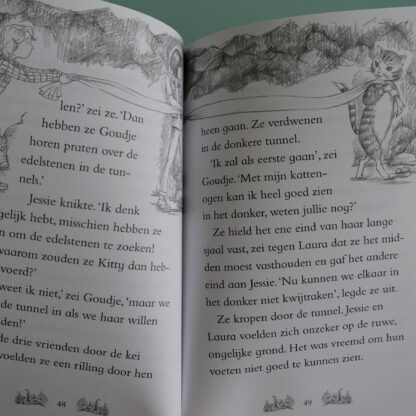 len?' zei ze. 'Dan
hebben ze Goudje
horen praten over de
edelstenen in de tun-
nels.'
Jessie knikte. 'Ik denk
gelijk hebt, misschien hebben ze
om de edelstenen te zoeken!
waarom zouden ze Kitty dan heb-
voerd?'
weet ik niet,' zei Goudje, 'maar we
de tunnel in als we haar willen
den!'
de drie vrienden door de kei
voelden ze een rilling door hen
48
heen gaan. Ze verdwenen
in de donkere tunnel.
'Ik zal als eerste gaan', zei
Goudje. 'Met mijn katten-
ogen kan ik heel goed zien
in het donker, weten jullie nog?'
Ze hield het ene eind van haar lange
sjaal vast, zei tegen Laura dat ze het mid-
den moest vasthouden en gaf het andere
eind aan Jessie. 'Nu kunnen we elkaar in
het donker niet kwijtraken', legde ze uit.
Ze kropen door de tunnel. Jessie en
Laura voelden zich onzeker op de ruwe,
ongelijke grond. Het was vreemd om hun
voeten niet goed te kunnen zien.
49